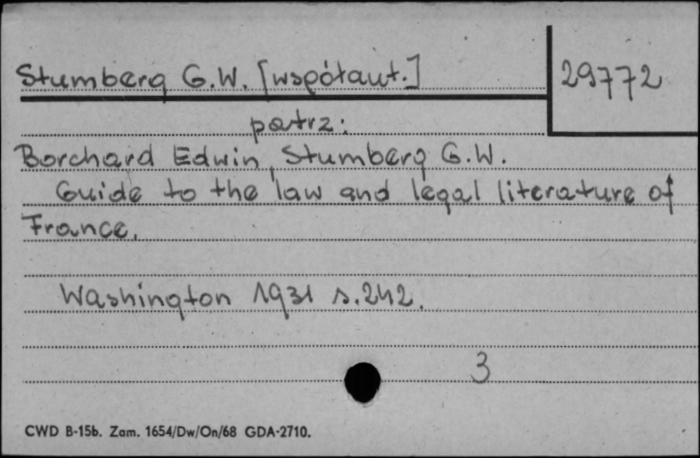 Stumberg G.W. [współaut.]
29772
patrz:
Borchard Edwin, Stumberg G.W.
Guide to the law and legal literature of
France.
Washington 1931 s.242.
3
CWD B-15b. Zam. 1654/Dw/On/68 GDA-2710.